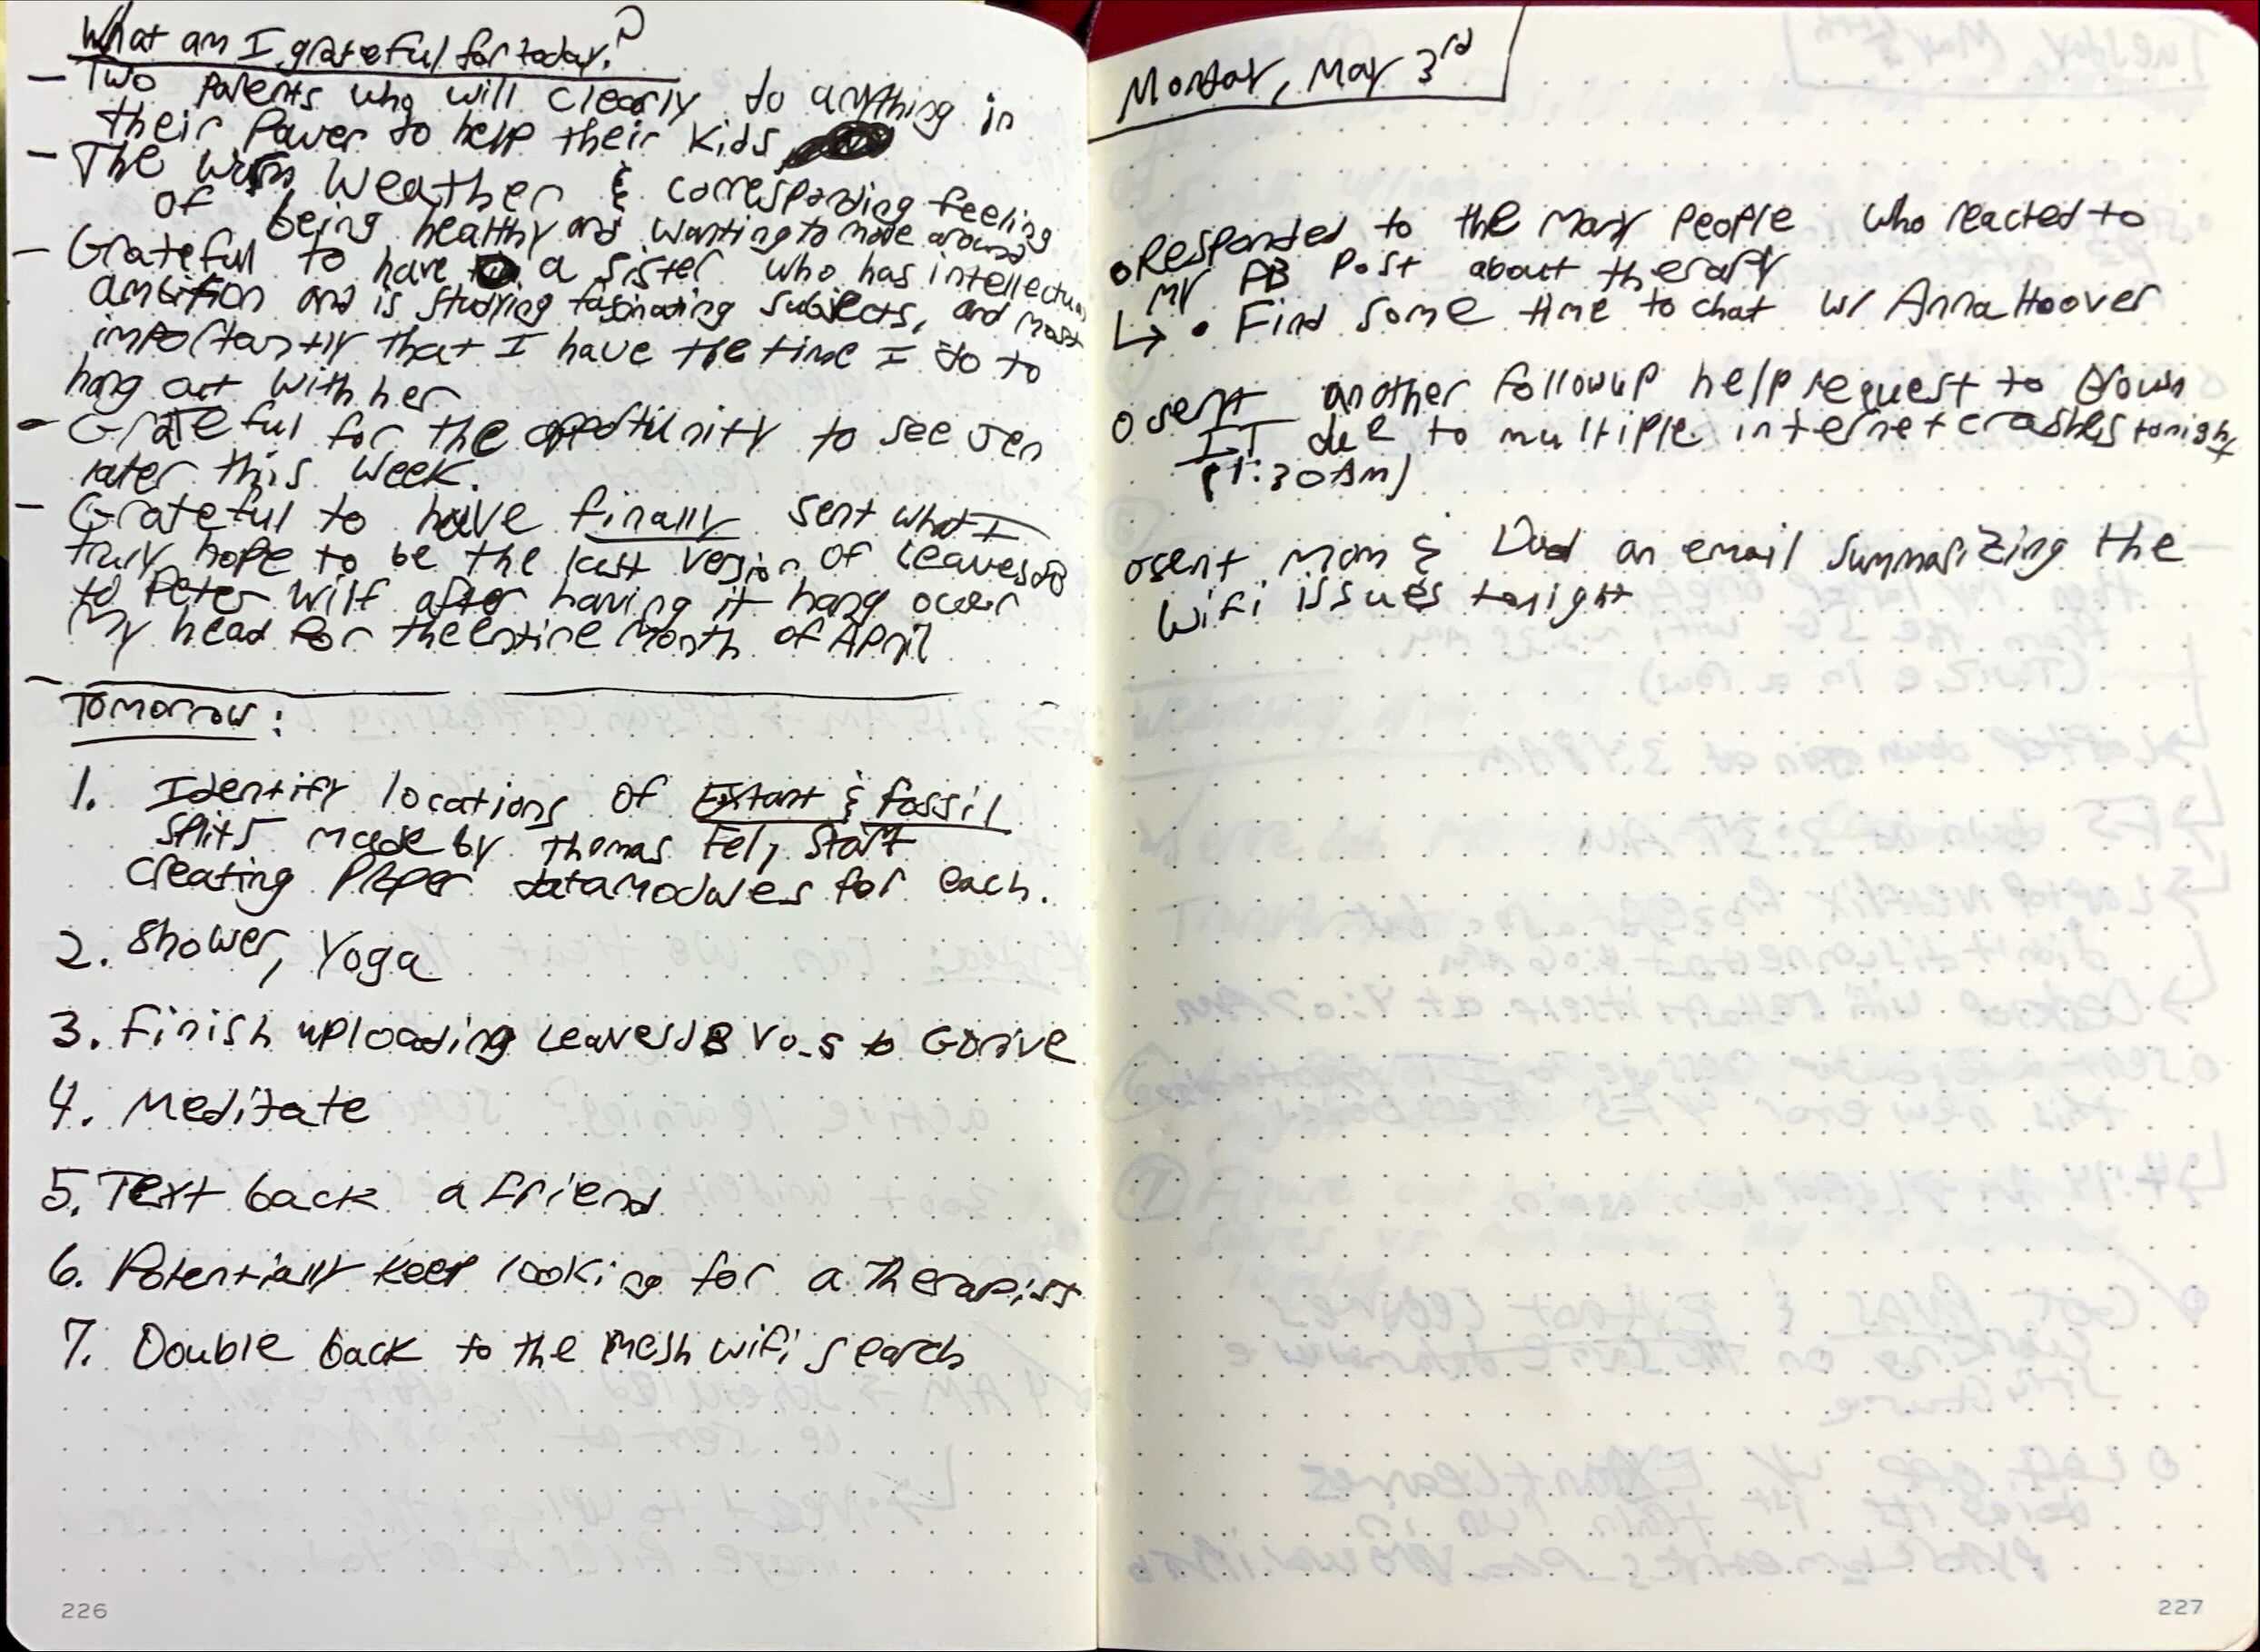 What am I grateful for today?
- Two parents who will clearly do anything in
their power to help their kids
- The warm weather & corresponding feeling
of being healthy and wanting to move around
- Grateful to have a sister who has intellectual
ambition and is studying fascinating subjects, and most
importantly that I have the time I do to
hang out with her
- Grateful for the opportunity to see Jen
later this week.
- Grateful to have finally sent what I
truly hope to be the last version of LeavesDB
to Peter Wilf after having it hang over
my head for the entire month of April
-
Tomorrow:
1. Identify locations of Extant & Fossil
splits made by Thomas Fel, start
creating proper datamodules for each.
2. Shower, Yoga
3. Finish uploading LeavesDB V0.5 to GDrive
4. Meditate
5. Text back a friend
6. Potentially keep looking for a therapist
7. Double back to the mesh wifi search
226
Monday, May 3rd
o Responded to the many people who reacted to
my FB post about therapy
↳ • Find some time to chat w/ Anna Hoover
o Sent another followup help request to Brown
IT due to multiple internet crashes tonight
(1:30AM)
o Sent Mom & Dad an email summarizing the
wifi issues tonight
227